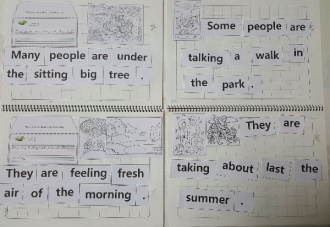 Many people are under
the sitting big tree .
Some people are
talking a walk in
the park .
They are feeling fresh
air of the morning .
They are
taking about last the
summer .